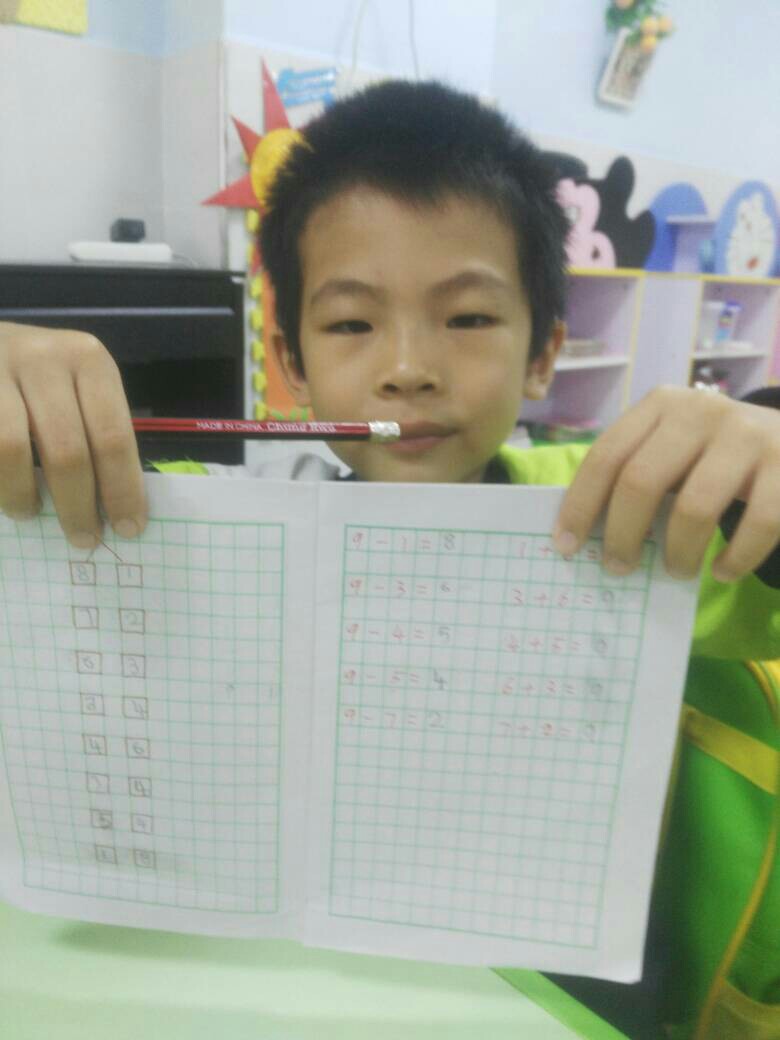 MADE IN CHINA Chung Hwa
8 1
7 2
6 3
3 4
4 6
7 4
5
9 - 1 = 8
9 - 3 = 6 3 + 6 = 9
9 - 4 = 5 4 + 5 = 9
9 - 5 = 4 6 + 3 = 9
9 - 7 = 2 7 + 2 = 9